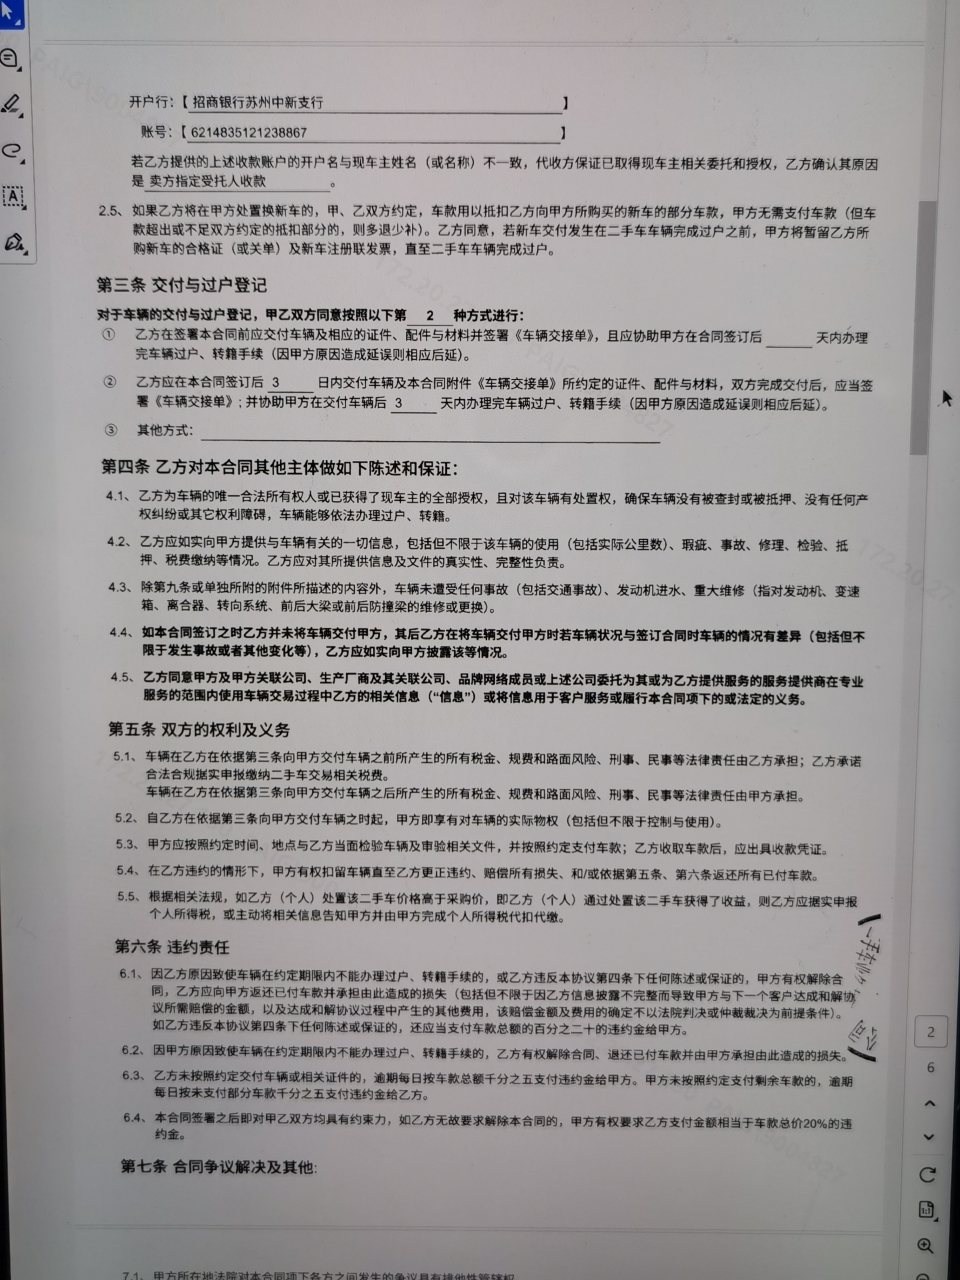 开户行：【 招商银行苏州中新支行 】
账号：【 6214835121238867 】
若乙方提供的上述收款账户的开户名与现车主姓名（或名称）不一致，代收方保证已取得现车主相关委托和授权，乙方确认其原因
是 卖方指定受托人收款 。
2.5、如果乙方将在甲方处置换新车的，甲、乙双方约定，车款用以抵扣乙方向甲方所购买的新车的部分车款，甲方无需支付车款（但车
款超出或不足双方约定的抵扣部分的，则多退少补）。乙方同意，若新车交付发生在二手车车辆完成过户之前，甲方将暂留乙方所
购新车的合格证（或关单）及新车注册联发票，直至二手车车辆完成过户。
第三条 交付与过户登记
对于车辆的交付与过户登记，甲乙双方同意按照以下第 2 种方式进行：
① 乙方在签署本合同前应交付车辆及相应的证件、配件与材料并签署《车辆交接单》，且应协助甲方在合同签订后 ____ 天内办理
完车辆过户、转籍手续（因甲方原因造成延误则相应后延）。
② 乙方应在本合同签订后 3 日内交付车辆及本合同附件《车辆交接单》所约定的证件、配件与材料，双方完成交付后，应当签
署《车辆交接单》；并协助甲方在交付车辆后 3 天内办理完车辆过户、转籍手续（因甲方原因造成延误则相应后延）。
③ 其他方式：
第四条 乙方对本合同其他主体做如下陈述和保证：
4.1、乙方为车辆的唯一合法所有权人或已获得了现车主的全部授权，且对该车辆有处置权，确保车辆没有被查封或被抵押、没有任何产
权纠纷或其它权利障碍，车辆能够依法办理过户、转籍。
4.2、乙方应如实向甲方提供与车辆有关的一切信息，包括但不限于该车辆的使用（包括实际公里数）、瑕疵、事故、修理、检验、抵
押、税费缴纳等情况。乙方应对其所提供信息及文件的真实性、完整性负责。
4.3、除第九条或单独所附的附件所描述的内容外，车辆未遭受任何事故（包括交通事故）、发动机进水、重大维修（指对发动机、变速
箱、离合器、转向系统、前后大梁或前后防撞梁的维修或更换）。
4.4、如本合同签订之时乙方并未将车辆交付甲方，其后乙方在将车辆交付甲方时若车辆状况与签订合同时车辆的情况有差异（包括但不
限于发生事故或者其他变化等），乙方应如实向甲方披露该等情况。
4.5、乙方同意甲方及甲方关联公司、生产厂商及其关联公司、品牌网络成员或上述公司委托为其或为乙方提供服务的服务提供商在专业
服务的范围内使用车辆交易过程中乙方的相关信息（“信息”）或将信息用于客户服务或履行本合同项下的或法定的义务。
第五条 双方的权利及义务
5.1、车辆在乙方在依据第三条向甲方交付车辆之前所产生的所有税金、规费和路面风险、刑事、民事等法律责任由乙方承担；乙方承诺
合法合规据实申报缴纳二手车交易相关税费。
车辆在乙方在依据第三条向甲方交付车辆之后所产生的所有税金、规费和路面风险、刑事、民事等法律责任由甲方承担。
5.2、自乙方在依据第三条向甲方交付车辆之时起，甲方即享有对车辆的实际物权（包括但不限于控制与使用）。
5.3、甲方应按照约定时间、地点与乙方当面检验车辆及审验相关文件，并按照约定支付车款；乙方收取车款后，应出具收款凭证。
5.4、在乙方违约的情形下，甲方有权扣留车辆直至乙方更正违约、赔偿所有损失、和/或依据第五条、第六条返还所有已付车款。
5.5、根据相关法规，如乙方（个人）处置该二手车价格高于采购价，即乙方（个人）通过处置该二手车获得了收益，则乙方应据实申报
个人所得税，或主动将相关信息告知甲方并由甲方完成个人所得税代扣代缴。
第六条 违约责任
6.1、因乙方原因致使车辆在约定期限内不能办理过户、转籍手续的，或乙方违反本协议第四条下任何陈述或保证的，甲方有权解除合
同，乙方应向甲方返还已付车款并承担由此造成的损失（包括但不限于因乙方信息披露不完整而导致甲方与下一个客户达成和解协
议所需赔偿的金额，以及达成和解协议过程中产生的其他费用，该赔偿金额及费用的确定不以法院判决或仲裁裁决为前提条件）。
如乙方违反本协议第四条下任何陈述或保证的，还应当支付车款总额的百分之二十的违约金给甲方。
6.2、因甲方原因致使车辆在约定期限内不能办理过户、转籍手续的，乙方有权解除合同、退还已付车款并由甲方承担由此造成的损失。
6.3、乙方未按照约定交付车辆或相关证件的，逾期每日按车款总额千分之五支付违约金给甲方。甲方未按照约定支付剩余车款的，逾期
每日按未支付部分车款千分之五支付违约金给乙方。
6.4、本合同签署之后即对甲乙双方均具有约束力，如乙方无故要求解除本合同的，甲方有权要求乙方支付金额相当于车款总价20%的违
约金。
第七条 合同争议解决及其他:
7.1、甲方所在地法院对本合同项下各方之间发生的争议具有排他性管辖权
2
6